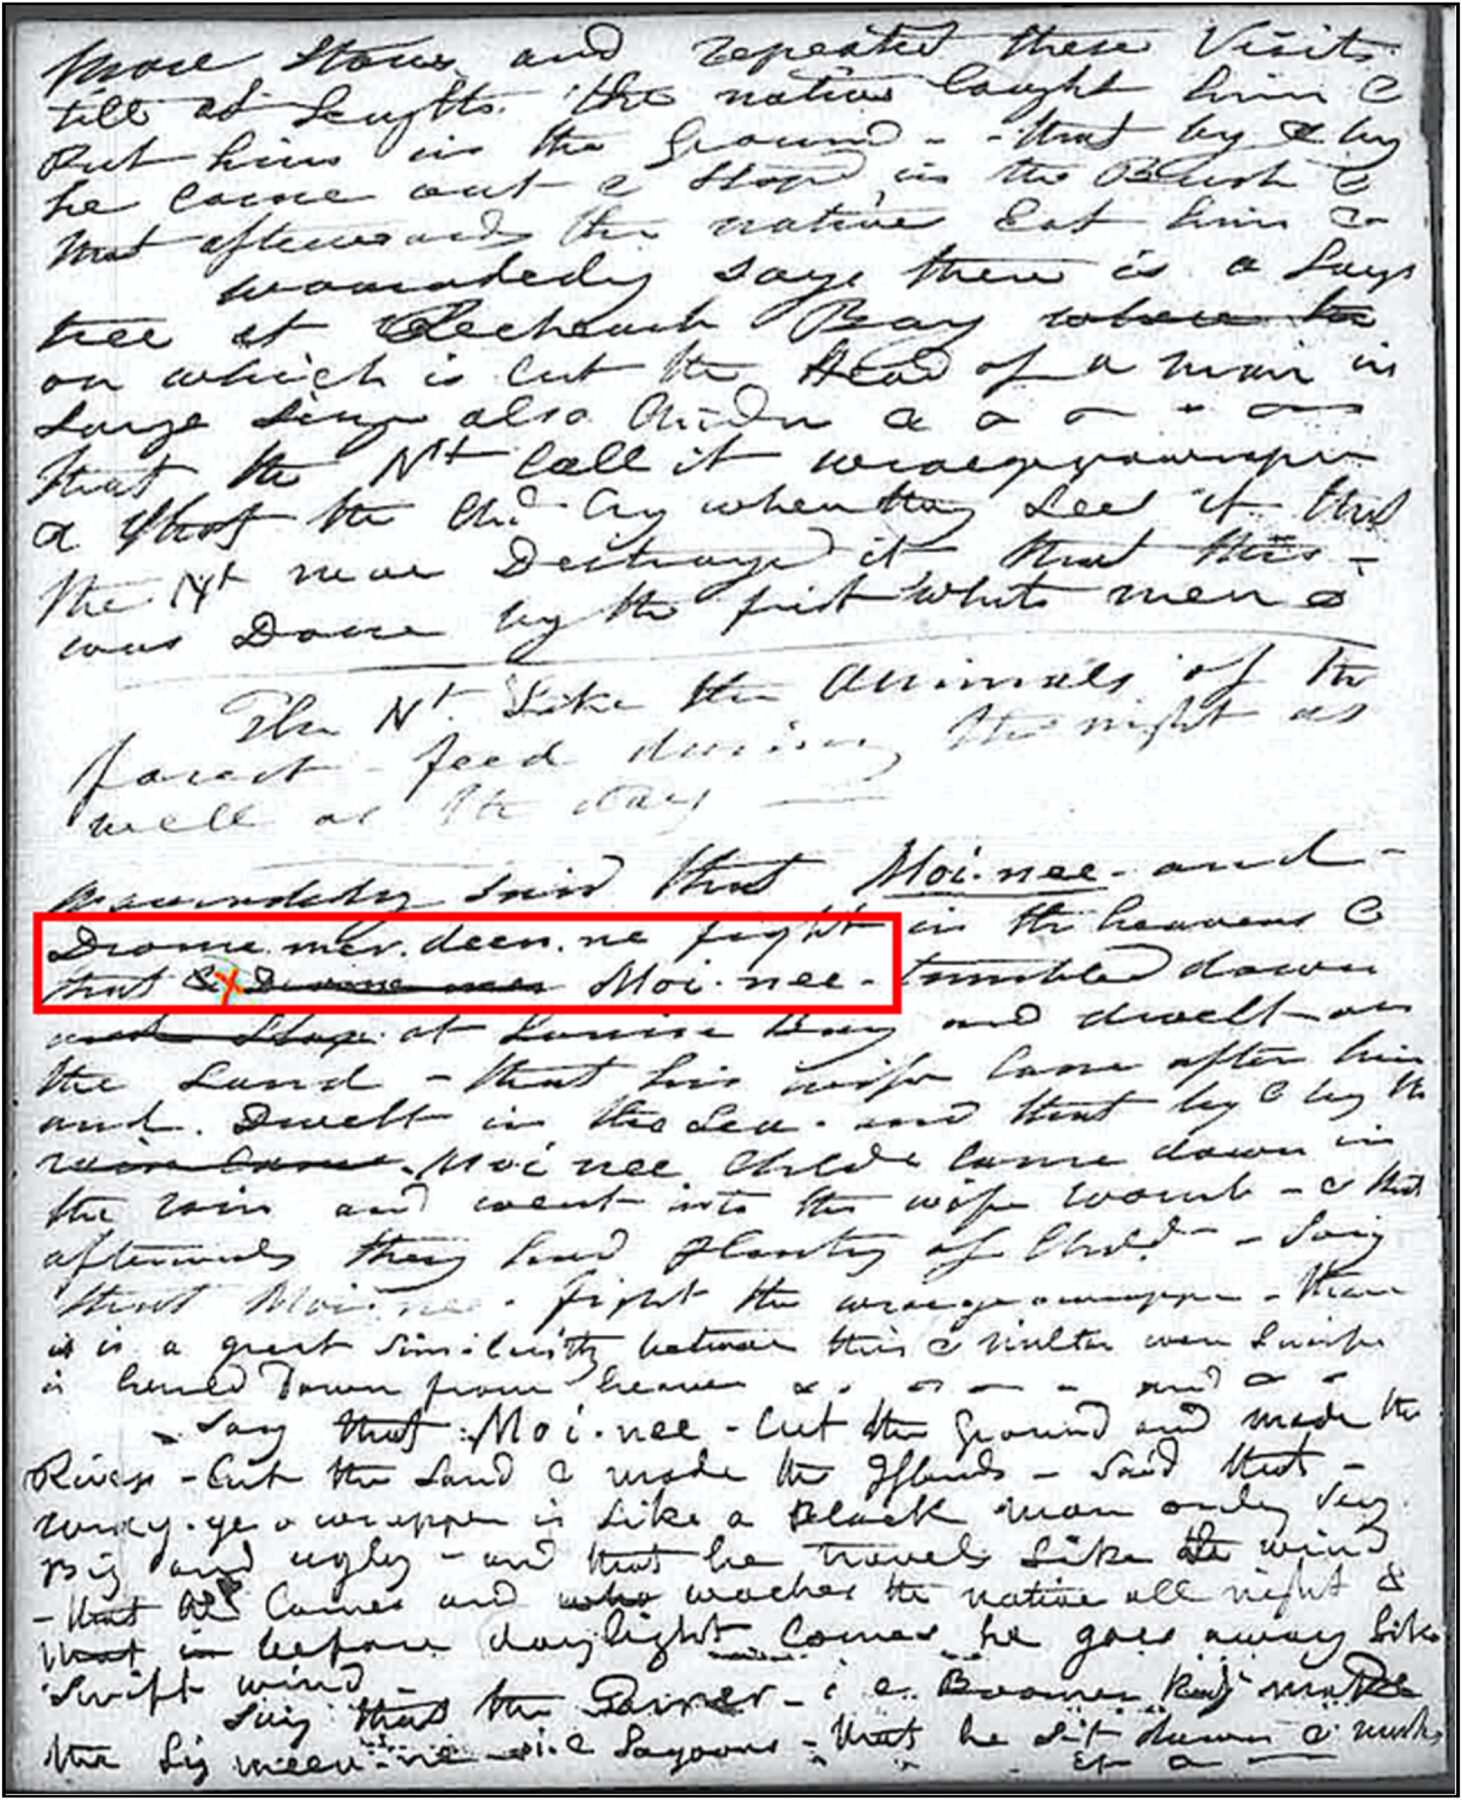 more Stones and repeated these Visits
till at length the native caught him &
Put him in the Ground - - that by & by
he came out & stop in the Bush &
that afterwards the native Eat him &c
woorrady says there is a large
tree at Recherch Bay where the
on which is cut the Head of a man in
Large size also Childn
that the Nt call it
a Ghost the Chd. Cry when they see it that
the Nt near Destroyed it, that this -
was Done by the first white men
The Nt. Like the Animals of the
forest - feed during the night as
well as the day
woorrady said that Moi.nee - and -
Drome.mer.deen.ne fight in the heavens &
that & Drome mer Moi.nee - tumbled down
and Stop at Louisa Bay and dwelt on
the Land - that his wife came after him
and. Dwelt in the Sea. and that by & by the
rain came. Moi nee Child came down in
the rain and went into the wife womb - & that
afterwards they had plenty of Child. - Say
that Moi.nee. fight the - there
is is a great similarity between this & milton were
is hurled Down from heaven and
Say that Moi.nee - Cut the Ground and made the
Rivers - Cut the Land & made the Islands - Said that -
is Like a Black man only very
Big and ugly - and that he travels Like the wind
- that he Comes and who waches the native all night &
that in before daylight comes he goes away Like
Swift wind
Say that the - i e. Boomer Kang make
the i.e Lagoons - that he sit down &